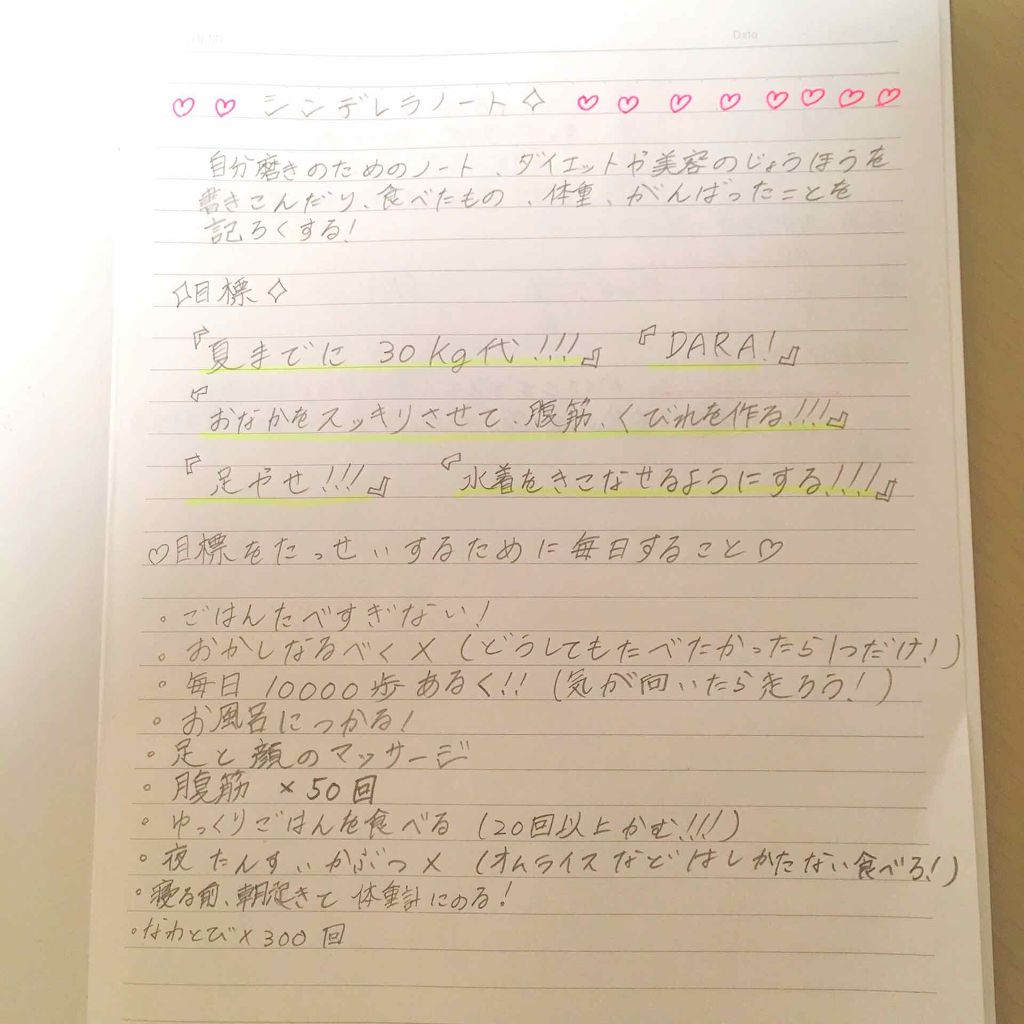 Date
♡ ♡ シンデレラノート✧ ♡ ♡ ♡ ♡ ♡ ♡ ♡ ♡
自分磨きのためのノート、ダイエットや美容のじょうほうを
書きこんだり、食べたもの、体重、がんばったことを
記ろくする!
✧目標✧
『夏までに 30kg代!!!』 『DARA!』
『おなかをスッキリさせて、腹筋、くびれを作る!!!』
『足やせ!!!』 『水着をきこなせるようにする!!!』
♡目標をたっせいするために毎日すること♡
・ごはんたべすぎない!
・おかしなるべく× (どうしてもたべたかったら1つだけ!)
・毎日 10000歩あるく!! (気が向いたら走ろう!)
・お風呂につかる!
・足と顔のマッサージ
・腹筋 ×50回
・ゆっくりごはんを食べる (20回以上かむ!!!)
・夜たんすいかぶつ× (オムライスなどはしかたない食べる!)
・寝る前、朝起きて 体重計にのる!
・なわとび×300回